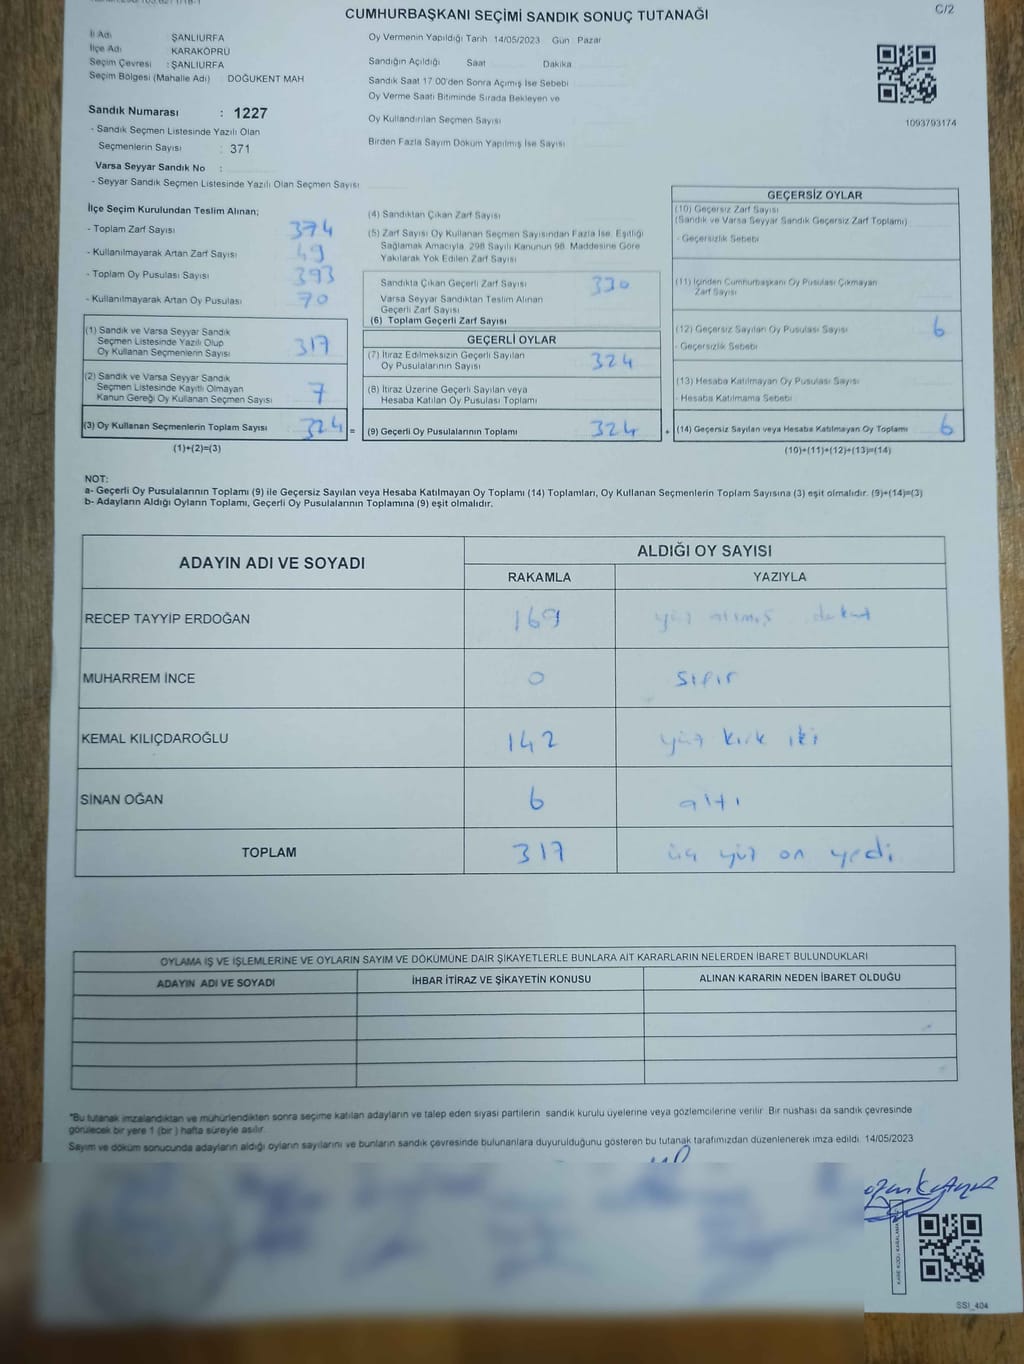 CUMHURBAŞKANI SEÇİMİ SANDIK SONUÇ TUTANAĞI
C/2
İl Adı ŞANLIURFA
İlçe Adı KARAKÖPRÜ
Seçim Çevresi : ŞANLIURFA
Seçim Bölgesi (Mahalle Adı) DOĞUKENT MAH
Sandık Numarası : 1227
- Sandık Seçmen Listesinde Yazılı Olan
Seçmenlerin Sayısı : 371
Varsa Seyyar Sandık No :
- Seyyar Sandık Seçmen Listesinde Yazılı Olan Seçmen Sayısı
Oy Vermenin Yapıldığı Tarih 14/05/2023 Gün Pazar
Sandığın Açıldığı Saat Dakika
Sandık Saat 17:00'den Sonra Açımış İse Sebebi
Oy Verme Saati Bitiminde Sırada Bekleyen ve
Oy Kullandırılan Seçmen Sayısı
Birden Fazla Sayım Döküm Yapılmış İse Sayısı
1093793174
İlçe Seçim Kurulundan Teslim Alınan;
- Toplam Zarf Sayısı 374
- Kullanılmayarak Artan Zarf Sayısı 49
- Toplam Oy Pusulası Sayısı 393
- Kullanılmayarak Artan Oy Pusulası 70
(1) Sandık ve Varsa Seyyar Sandık
Seçmen Listesinde Yazılı Olup
Oy Kullanan Seçmenlerin Sayısı 317
(2) Sandık ve Varsa Seyyar Sandık
Seçmen Listesinde Kayıtlı Olmayan
Kanun Gereği Oy Kullanan Seçmen Sayısı 7
(3) Oy Kullanan Seçmenlerin Toplam Sayısı 324 =
(1)+(2)=(3)
(4) Sandıktan Çıkan Zarf Sayısı
(5) Zarf Sayısı Oy Kullanan Seçmen Sayısından Fazla İse, Eşitliği
Sağlamak Amacıyla 298 Sayılı Kanunun 98. Maddesine Göre
Yakılarak Yok Edilen Zarf Sayısı
Sandıkta Çıkan Geçerli Zarf Sayısı 330
Varsa Seyyar Sandıktan Teslim Alınan
Geçerli Zarf Sayısı
(6) Toplam Geçerli Zarf Sayısı
GEÇERLİ OYLAR
(7) İtiraz Edilmeksizin Geçerli Sayılan
Oy Pusulalarının Sayısı 324
(8) İtiraz Üzerine Geçerli Sayılan veya
Hesaba Katılan Oy Pusulası Toplamı
(9) Geçerli Oy Pusulalarının Toplamı 324 +
GEÇERSİZ OYLAR
(10) Geçersiz Zarf Sayısı
(Sandık ve Varsa Seyyar Sandık Geçersiz Zarf Toplamı)
- Geçersizlik Sebebi
(11) İçinden Cumhurbaşkanı Oy Pusulası Çıkmayan
Zarf Sayısı
(12) Geçersiz Sayılan Oy Pusulası Sayısı 6
- Geçersizlik Sebebi
(13) Hesaba Katılmayan Oy Pusulası Sayısı
- Hesaba Katılmama Sebebi
(14) Geçersiz Sayılan veya Hesaba Katılmayan Oy Toplamı 6
(10)+(11)+(12)+(13)=(14)
NOT:
a- Geçerli Oy Pusulalarının Toplamı (9) ile Geçersiz Sayılan veya Hesaba Katılmayan Oy Toplamı (14) Toplamları, Oy Kullanan Seçmenlerin Toplam Sayısına (3) eşit olmalıdır. (9)+(14)=(3)
b- Adayların Aldığı Oyların Toplamı, Geçerli Oy Pusulalarının Toplamına (9) eşit olmalıdır.
ADAYIN ADI VE SOYADI
ALDIĞI OY SAYISI
RAKAMLA YAZIYLA
RECEP TAYYİP ERDOĞAN 169 yüz altmış dokuz
MUHARREM İNCE 0 sıfır
KEMAL KILIÇDAROĞLU 142 yüz kırk iki
SİNAN OĞAN 6 altı
TOPLAM 317 üç yüz on yedi
OYLAMA İŞ VE İŞLEMLERİNE VE OYLARIN SAYIM VE DÖKÜMÜNE DAİR ŞİKAYETLERLE BUNLARA AİT KARARLARIN NELERDEN İBARET BULUNDUKLARI
ADAYIN ADI VE SOYADI İHBAR İTİRAZ VE ŞİKAYETİN KONUSU ALINAN KARARIN NEDEN İBARET OLDUĞU
*Bu tutanak imzalandıktan ve mühürlendikten sonra seçime katılan adayların ve talep eden siyasi partilerin sandık kurulu üyelerine veya gözlemcilerine verilir. Bir nüshası da sandık çevresinde
görülecek bir yere 1 (bir) hafta süreyle asılır.
Sayım ve döküm sonucunda adayların aldığı oyların sayılarını ve bunların sandık çevresinde bulunanlara duyurulduğunu gösteren bu tutanak tarafımızdan düzenlenerek imza edildi. 14/05/2023
SSI_404